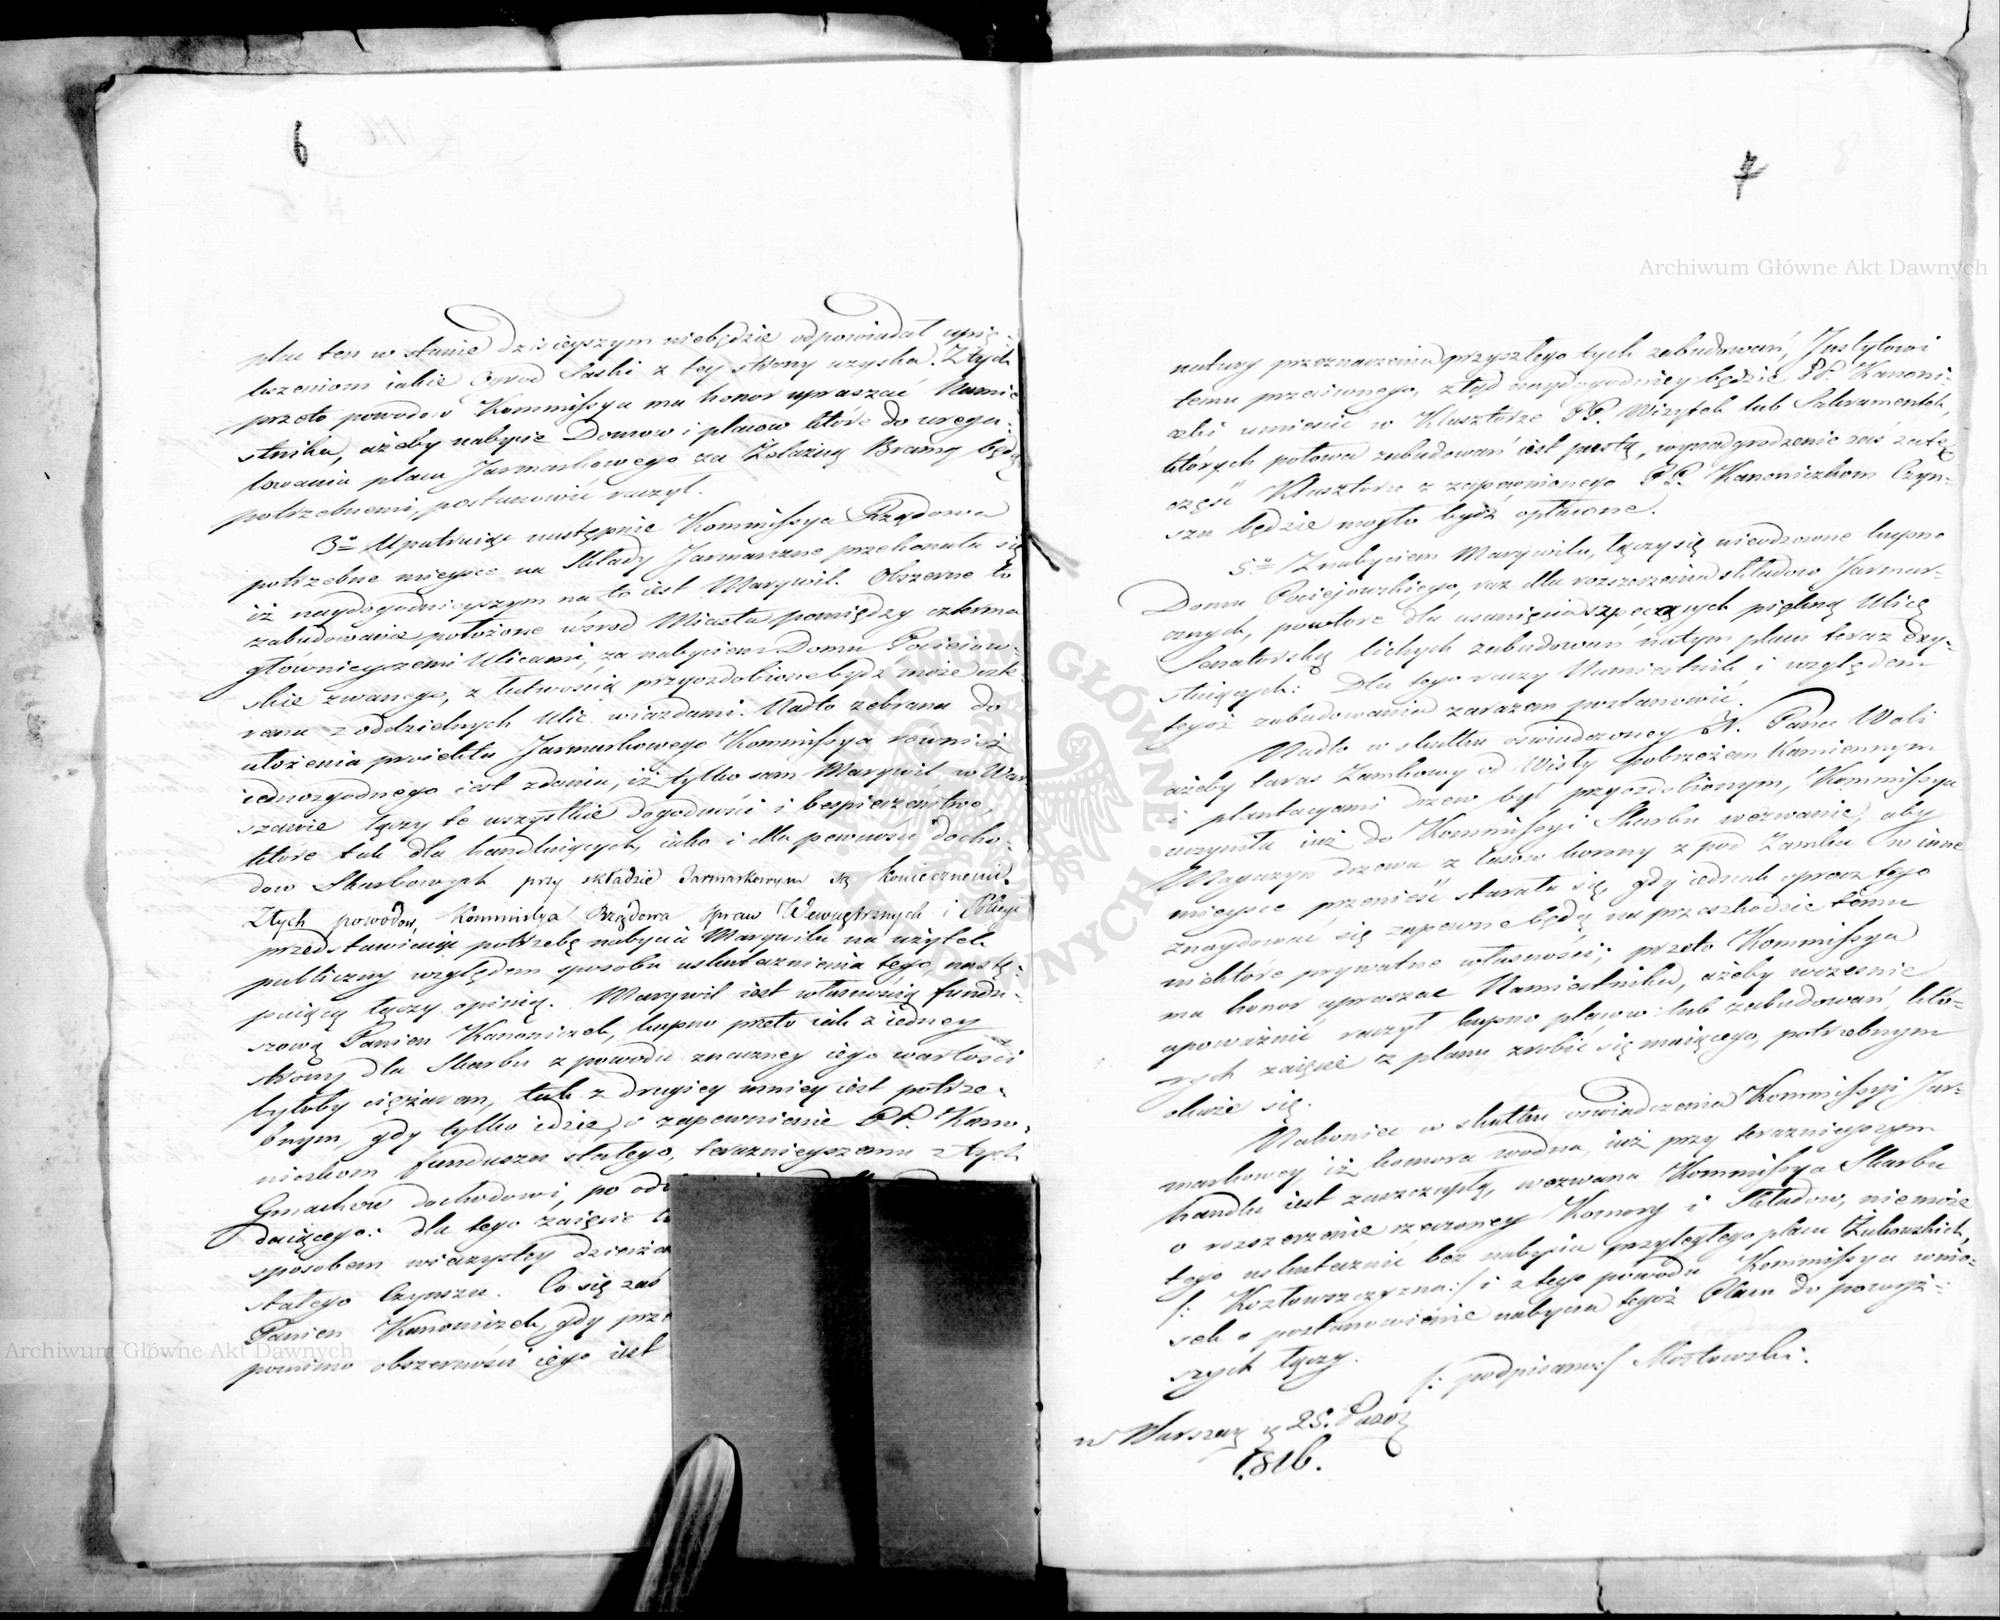 6
plac ten w stanie dzisieyszym niebędzie odpowiadał upię-
kszeniom iakie Ogrod Saski z tey strony uzyska. Z tych
przeto powodów Kommissya ma honor upraszać Namie
stnika, ażeby nabycie Domow i placow które do uregu-
lowania placu Jarmarkowego za Żelazną Bramą będą
potrzebnemi, postanowić raczył.
3o Upatruiąc następnie Kommissya Rządowa
potrzebne mieysce na Składy Jarmarczne przekonała się
iż naydogodnieyszym na to iest Marywil. Obszerne to
zabudowanie położone wśrod Miasta pomiędzy czterma
główneyszemi Ulicami, za nabyciem Domu Pociejow-
skie zwanego, z łatwością przyozdobione bydź może czte-
rema z oddzielnych Ulic wiazdami. Nadto zebrana do
ułożenia proiektu Jarmarkowego Kommissya również
iednozgodnego iest zdania, iż tylko sam Marywil w War
szawie łączy te wszystkie dogodności i bespieczeństwo,
które tak dla handluiących, iako i dla pewności docho-
dow Skarbowych przy składzie Jarmarkowym są koniecznemi.
Z tych powodow, Kommissya Rządowa Spraw Wewnętrznych i Policyi
przedstawiaiąc potrzebę nabycia Marywilu na użytek
publiczny względem sposobu uskutecznienia tego nastę-
puiącą łączy opinią. Marywil iest własnością fundu-
szową Panien Kanoniczek, kupno przeto ich z iedney
strony dla Skarbu z powodu znaczney iego wartości
byłoby ciężarem, tak z drugiey mniey iest potrze-
bnym, gdy tylko idzie o zapewnienie PP. Kano-
niczkom funduszu stałego, teraznieyszemu z tych
Gmachów dochodowi, po od
daiącego: dla tego zaięcie t
sposobem wieczystey dzierża
stałego Czynszu. Co się zaś
Panien Kanoniczek, gdy prze
pomimo obszerności iego iest
7
natury przeznaczenia przyszłego tych zabudowań, Instytutowi
temu przeciwnego, ztąd naydogodniey będzie PP. Kanoni-
czki umieścić w Klasztorze PP. Wizytek lub Sakramentek,
których połowa zabudowań iest pusta, wynadgrodzenie zaś za tę
część Klasztoru z zapewnionego PP. Kanoniczkom Czyn-
szu będzie mogło bydź opłacone.
5o Z nabyciem Marywilu, łączy się nieodzowne kupno
Domu Pociejowskiego, raz dla rozszerzenia składow Jarmar-
cznych, powtóre dla usunięcia szpecących piękną Ulicę
Senatorską lichych zabudowań natym placu teraz exy-
stuiących: Dla tego raczy Namiestnik i względem
tegoż zabudowania zarazem postanowić.
Nadto w skutku oświadczoney N. Pana Woli
ażeby taras Zamkowy od Wisły pobrzeżem Kamiennym
i plantacyami drzew był przyozdobionym, Kommissya
uczyniła iuż do Kommissyi Skarbu wezwanie, aby
Magazyn drzewa z lasow korony z pod Zamku w inne
mieysce przenieść starała się, gdy iednak oprocz tego
znaydować się zapewne będą na przeszkodzie temu
niektóre prywatne własności; przeto Kommissya
ma honor upraszać Namiestnika, ażeby wczesnie
upoważnić raczył kupno placow lub zabudowań, któ-
rych zaięcie z planu zrobić się maiącego, potrzebnym
okaże się.
Nakoniec w skutku oświadczenia Kommissyi Jar-
markowey iż komora wodna, iuż przy teraznieyszym
handlu iest zaszczupłą, wezwana Kommissya Skarbu
o rozszerzenie rzeczoney Komory i Składow, niemoże
tego uskutecznić bez nabycia przyległego placu Żukowskich,
/: Kozłowszczyzna:/ i z tego powodu Kommissya wnio-
sek o postanowienie nabycia tegoż Placu do powyż-
szych łączy.
/: podpisano:/ Mostowski.
w Warszawie 25. Paźdz
1816.
Archiwum Główne Akt Dawnych
Archiwum Główne Akt Dawnych